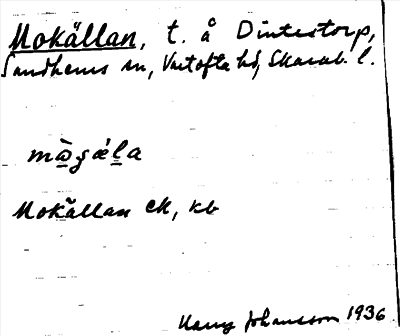 Mokällan, t. å Dintestorp,
Sandhems sn, Vartofta hd, Skarab. l.
mɷ̀gǽla
Mokällan ek, kb
Harry Johansson 1936